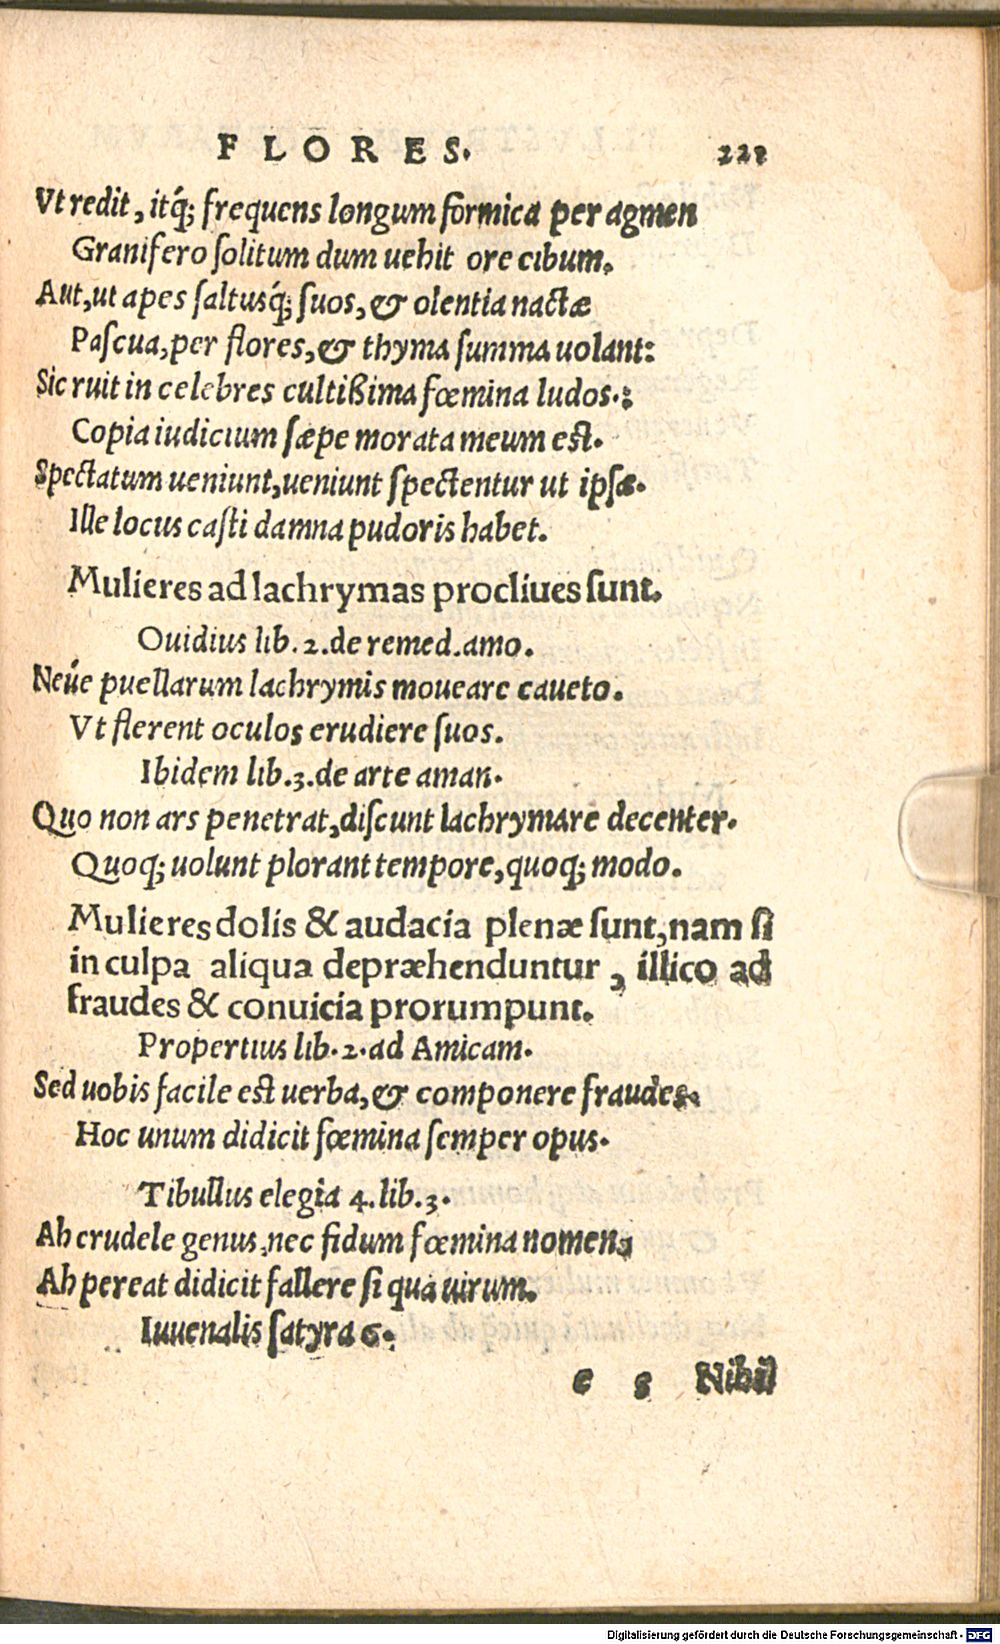 FLORES. 221
Vt redit, itq́; frequens longum formica per agmen
Granifero solitum dum uehit ore cibum.
Aut, ut apes saltusq́; suos, & olentia nactæ
Pascua, per flores, & thyma summa uolant:
Sic ruit in celebres cultißima fœmina ludos.:
Copia iudicium sæpe morata meum est.
Spectatum ueniunt, ueniunt spectentur ut ipsæ.
Ille locus casti damna pudoris habet.
Mulieres ad lachrymas procliues sunt.
Ouidius lib. 2. de remed. amo.
Neúe puellarum lachrymis moueare caueto.
Vt flerent oculos erudiere suos.
Ibidem lib. 3. de arte aman.
Quo non ars penetrat, discunt lachrymare decenter.
Quoq; uolunt plorant tempore, quoq; modo.
Mulieres dolis & audacia plenæ sunt, nam si
in culpa aliqua depræhenduntur, illico ad
fraudes & conuicia prorumpunt.
Propertius lib. 2. ad Amicam.
Sed uobis facile est uerba, & componere fraudes.
Hoc unum didicit fœmina semper opus.
Tibullus elegia 4. lib. 3.
Ah crudele genus, nec fidum fœmina nomen,
Ah pereat didicit fallere si qua uirum.
Iuuenalis satyra 6.
e 5 Nihil
Digitalisierung gefördert durch die Deutsche Forschungsgemeinschaft - DFG